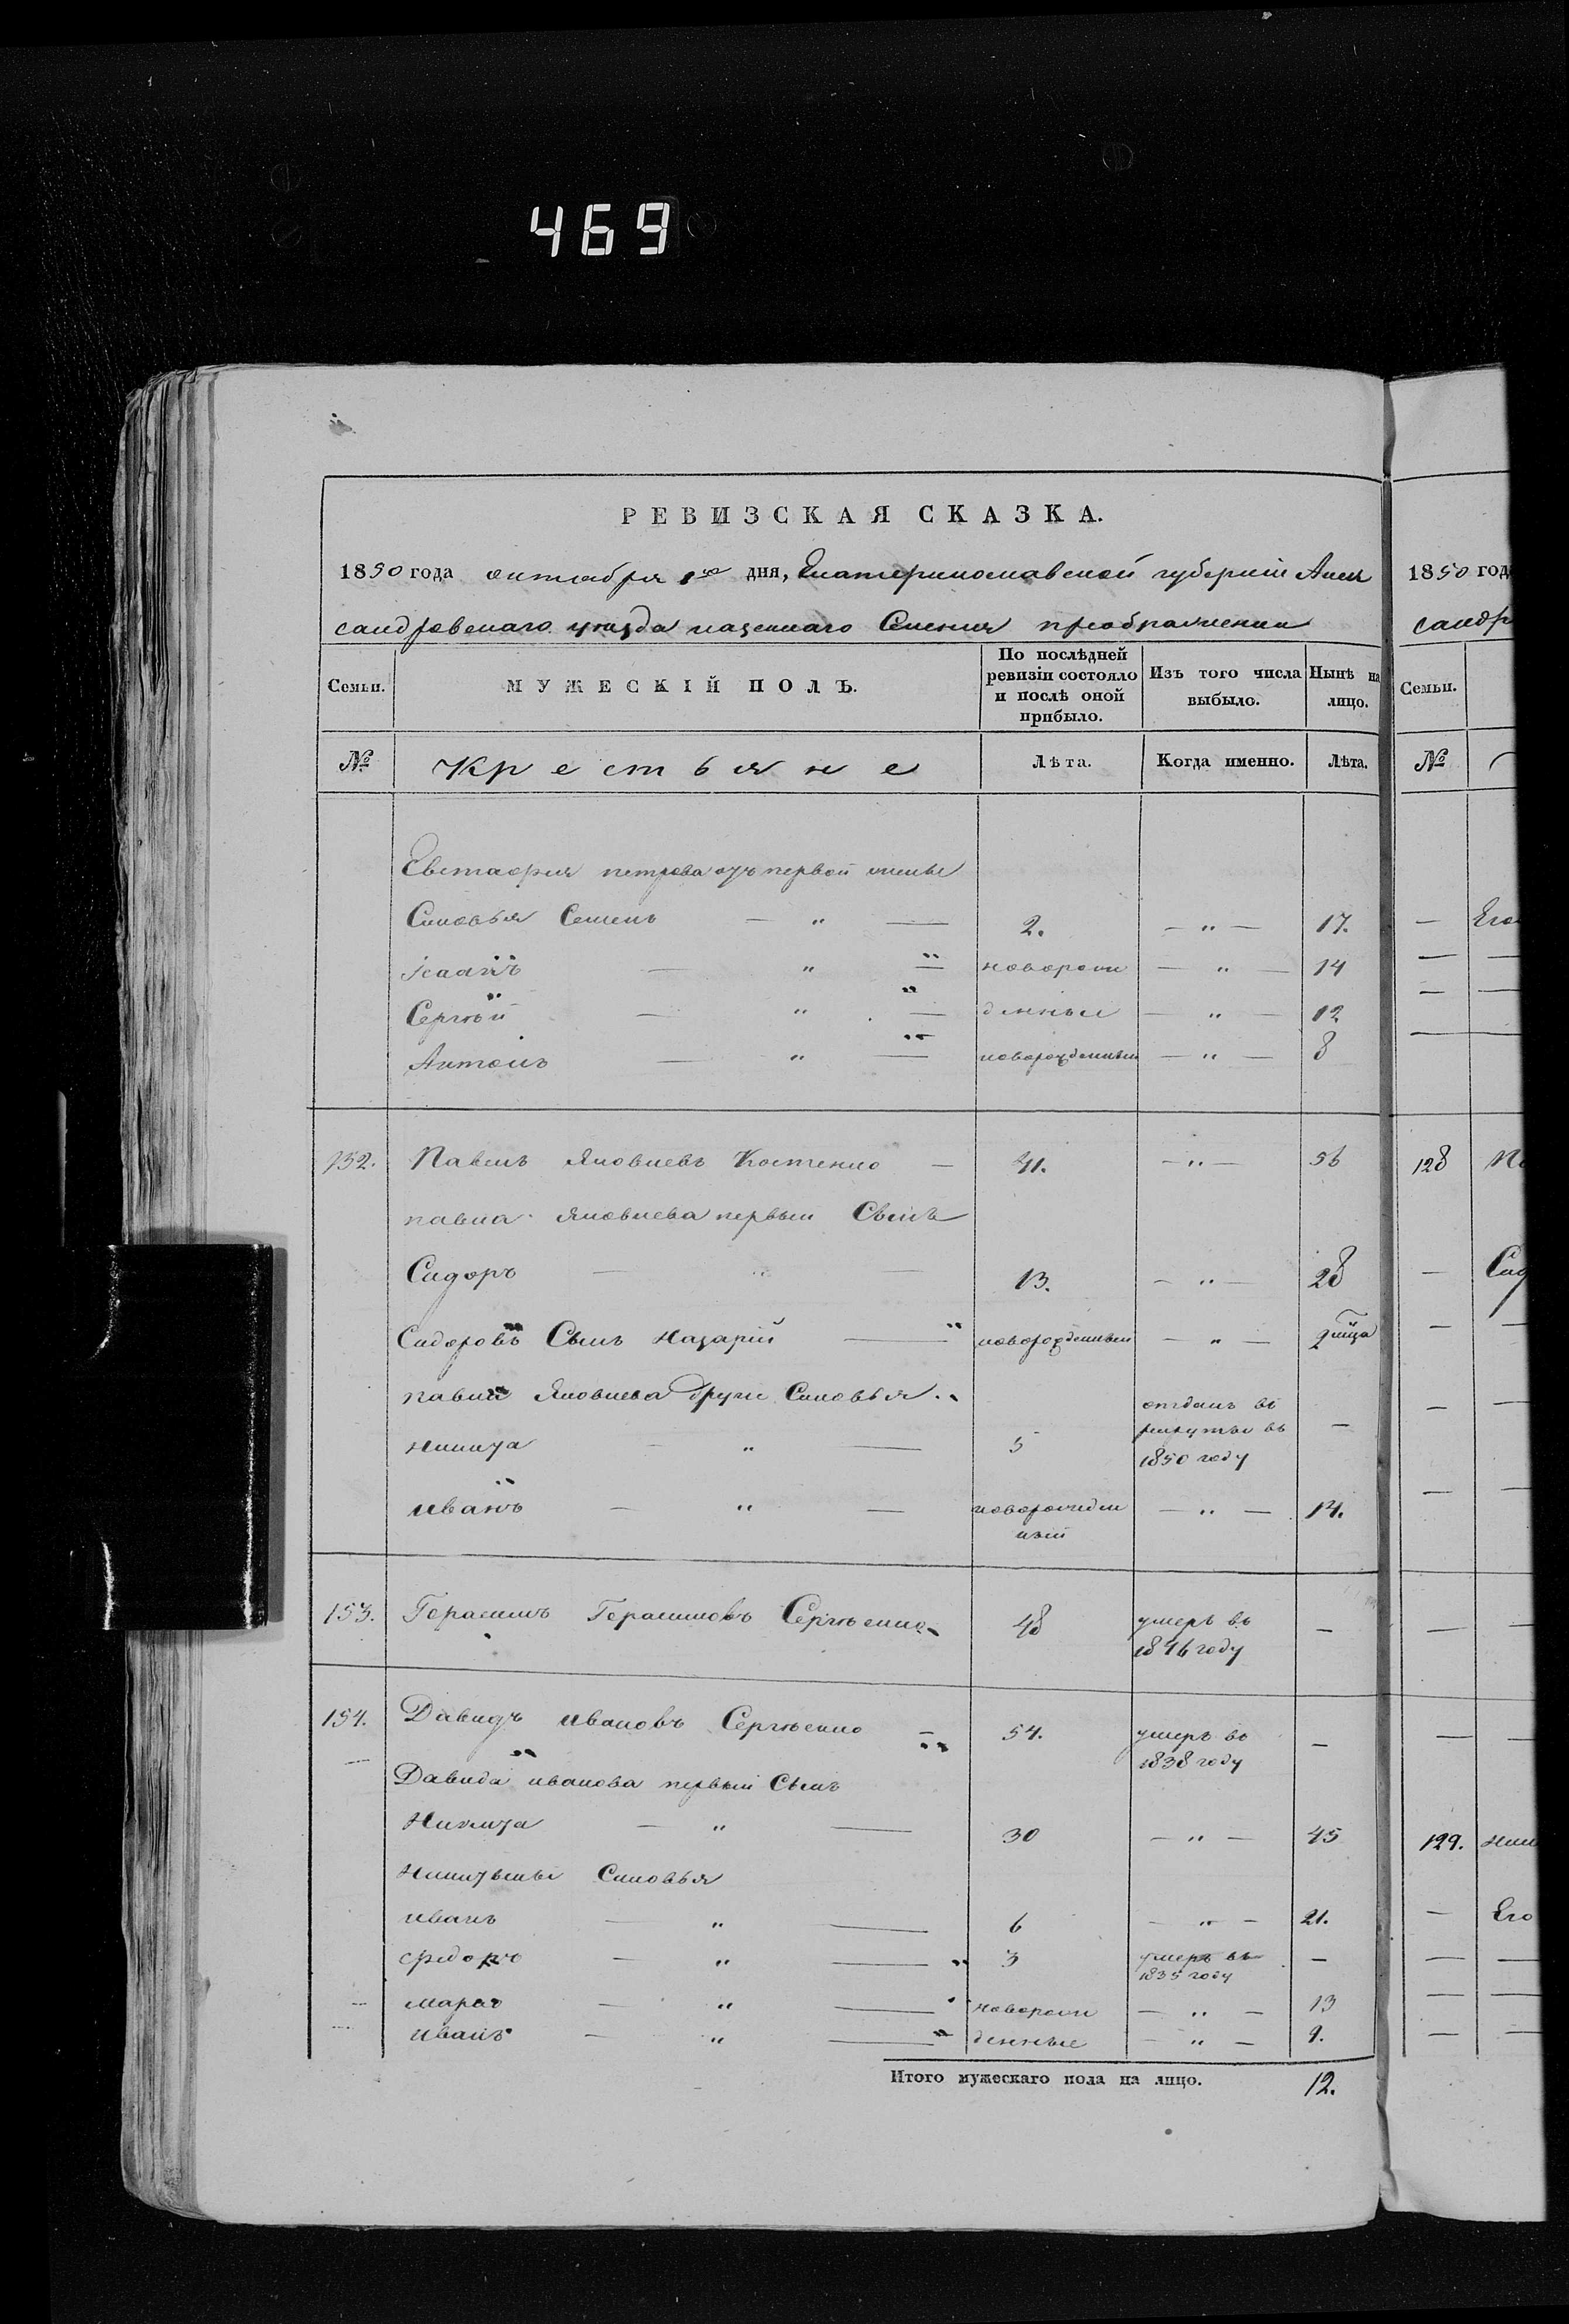 469
РЕВИЗСКАЯ СКАЗКА.
1850 года октября 1го дня, Екатеринославской губерніи Алек
сандровскаго уѣзда казеннаго Селенія преображенки
Семьи.
МУЖЕСКІЙ ПОЛЪ.
По послѣдней ревизіи состояло и послѣ оной прибыло.
Изъ того числа выбыло.
Нынѣ на лицо.
№
Крестьяне
Лѣта.
Когда именно.
Лѣта.
Евстафія петрова отъ первой жены
Синовья Семенъ — „ — 2. — „ — 17.
Іоаннъ — „ — новорож — „ — 14
Сергѣй — „ — денные — „ — 12
Антонъ — „ — новорожденный — „ — 8
152. Павелъ Яковлевъ Костенко — 41. — „ — 56
павла Яковлева первый Сынъ
Сидоръ — „ — 13. — „ — 28
Сидоровъ Сынъ Назарій — новорожденный — „ — 2
павла Яковлева други Синовья
Никита — „ — 5 отданъ въ рекруты въ 1850 году —
Иванъ — „ — новорожден ный — „ — 14.
153. Герасимъ Герасимовъ Сергѣенко 48 умеръ въ 1846 году —
154. Давидъ Ивановъ Сергѣенко — 54. умеръ въ 1838 году —
Давида иванова первый Сынъ
Никита — „ — 30 — „ — 45
Никитыны Синовья
Иванъ — „ — 6 — „ — 21.
Федоръ — „ — 3 умеръ въ 1835 году —
Марко — „ — новорож — „ — 13
Иванъ — „ — денные — „ — 9.
Итого мужескаго пола на лицо. 12.
1850 год
сандр
Семьи.
№
Его
128
Сид
129. Ник
Его